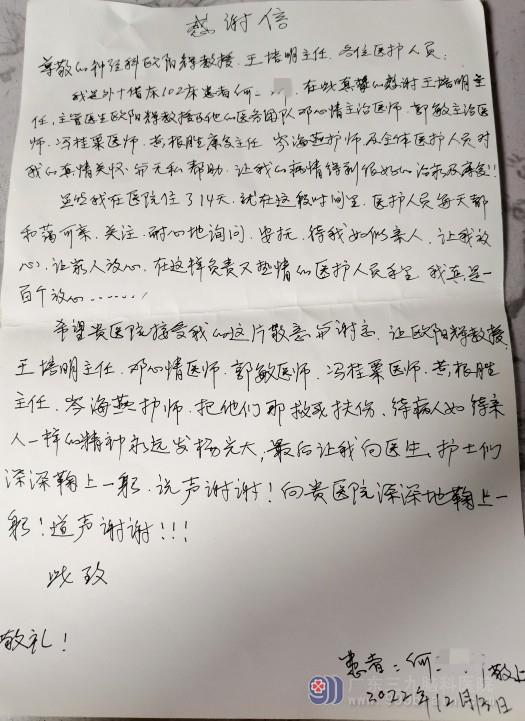 感谢信
尊敬的神经科欧阳辉教授、王培明主任、各位医护人员:
我是外十借床102床患者何 在此真挚的感谢王培明主
任、主管医生欧阳辉教授及他的医务团队邓心情主治医师、郭敏主治医
师、冯桂粟医师、黄根胜康复主任 岑海燕护师及全体医护人员对
我的真情关怀和无私帮助、让我的病情得到很好的治疗及康复!!
虽然我在医院住了14天、就在这段时间里、医护人员每天都
和蔼可亲、关注、耐心地询问、安抚、待我如似亲人、让我放
心、让家人放心、在这样负责又热情的医护人员手里、我真是一
百个放心……!
希望贵医院接受我的这片敬意和谢意、让欧阳辉教授、
王培明主任、邓心情医师、郭敏医师、冯桂粟医师、黄根胜
主任、岑海燕护师、把他们那救死扶伤、待病人如待亲
人一样的精神永远发扬光大,最后让我向医生、护士们
深深鞠上一躬、说声谢谢!向贵医院深深地鞠上一
躬!道声谢谢!!!
此致
敬礼!
患者:何 敬上
2022年12月13日
广东三九脑科医院